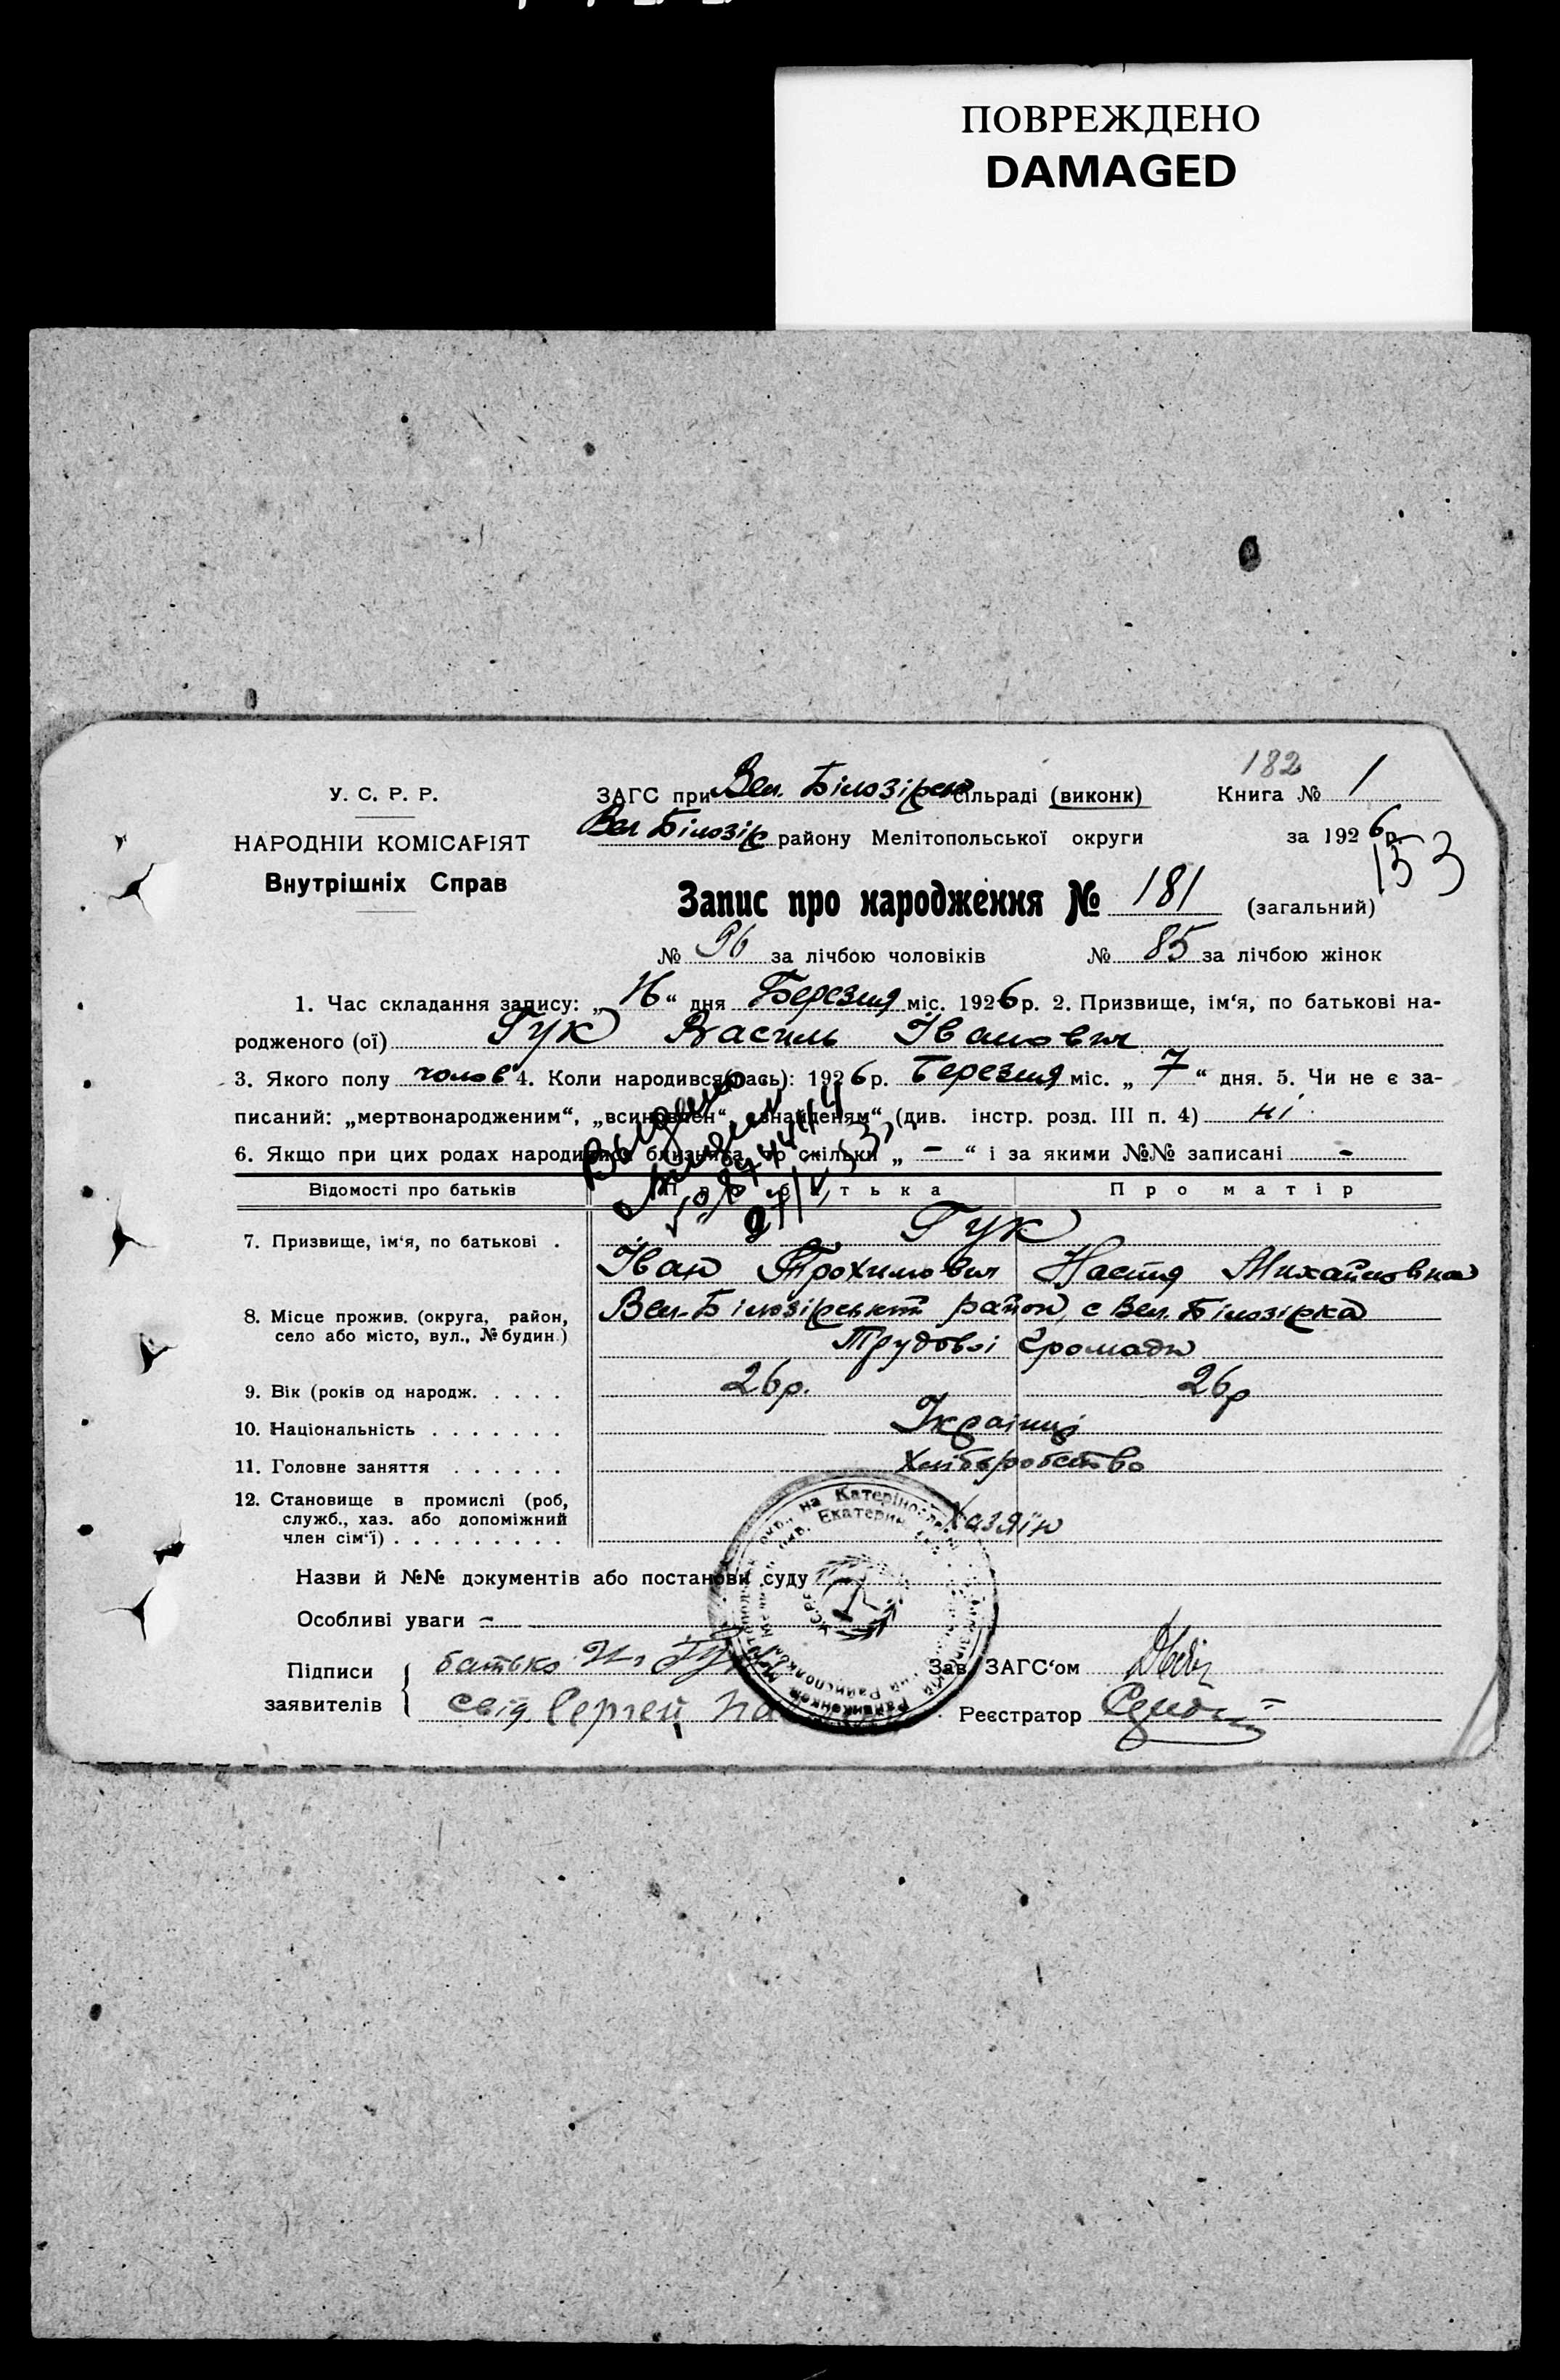 ПОВРЕЖДЕНО
DAMAGED
182
У. С. Р. Р.
ЗАГС при Вел. Білозірск сільраді (виконк)
Книга № 1
НАРОДНІЙ КОМІСАРІЯТ
Вел Білозір району Мелітопольської округи
за 1926 р.
153
Внутрішніх Справ
Запис про народження № 181 (загальний)
№ 96 за лічбою чоловіків № 85 за лічбою жінок
1. Час складання запису: „16“ дня Березня міс. 1926 р. 2. Призвище, ім‘я, по батькові на-
родженого (ої) Гук Василь Іванович
3. Якого полу чолов 4. Коли народився(лась): 1926 р. Березня міс. „7“ дня. 5. Чи не є за-
писаний: „мертвонародженим“, „всиновлен“ „знайденям“ (див. інстр. розд. III п. 4) ні
6. Якщо при цих родах народились близнята, то скільки „-“ і за якими №№ записані -
Выдано
Відомості про батьків
Про батька
Про матір
7. Призвище, ім‘я, по батькові .
Гук
Іван Трохимович
Настя Михайловна
8. Місце прожив. (округа, район,
село або місто, вул., № будин.)
Вел-Білозірський район, с Вел. Білозірка
Трудової громади
9. Вік (років од народж. . . . .
26 р.
26 р
10. Національність . . . . . . .
Українці
11. Головне заняття . . . . . .
Хліборобство
12. Становище в промислі (роб,
служб., хаз. або допоміжний
член сім‘ї) . . . . . . . . .
Хазяїн
Назви й №№ документів або постанови суду
Особливі уваги -
Підписи
заявителів
батько И. Гук
свід. Сергей
Зав. ЗАГС‘ом
Реєстратор